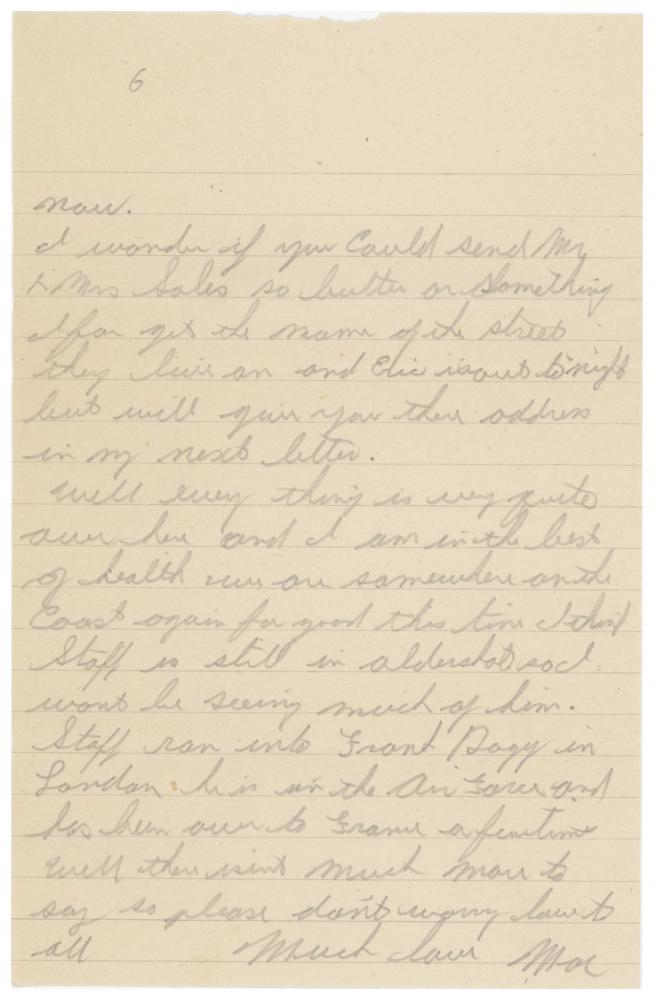 6
now.
I wonder if you Could send Mr
& Mrs Sales so butter or Something
I for get the name of the street
they live on and Eric is out to night
but will give you there address
in my next letter.
Well every thing is very quite
over here and I am in the best
of health we are somewhere on the
Coast again for good this time I think
Staff is still in aldershot so I
wont be seeing much of him.
Staff ran into Frank Dagg in
London he is in the Air Force and
has been over to France a few time
Well there isint much more to
say so please don't worry love to
all Much love Mac